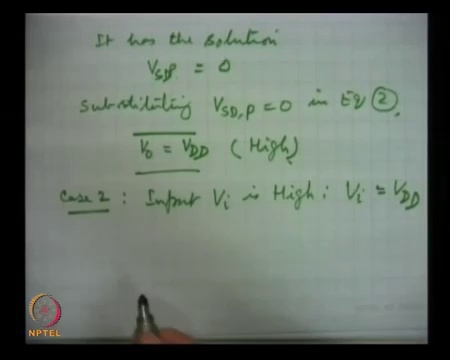 It has the solution
V_SD,P = 0
Substituting V_SD,P = 0 in Eq ②,
V_0 = V_DD (High)
Case 2 : Input V_i is High ; V_i = V_DD
NPTEL